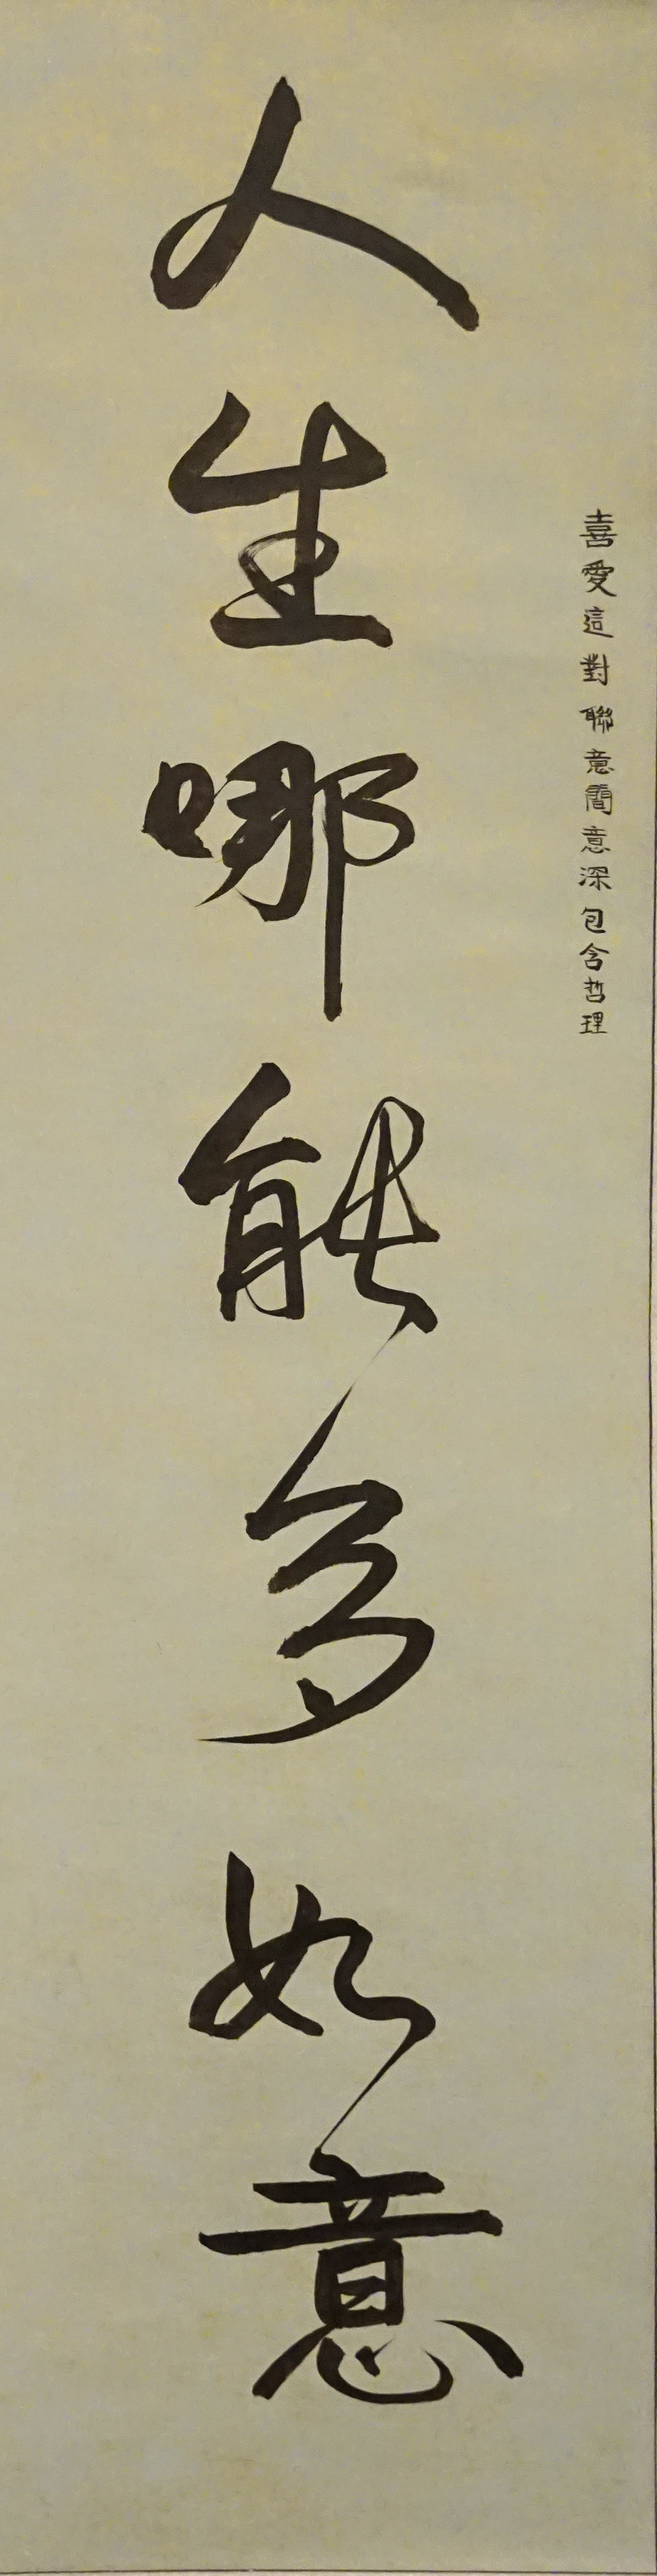 喜愛這對聯意簡意深包含哲理
人生哪能多如意